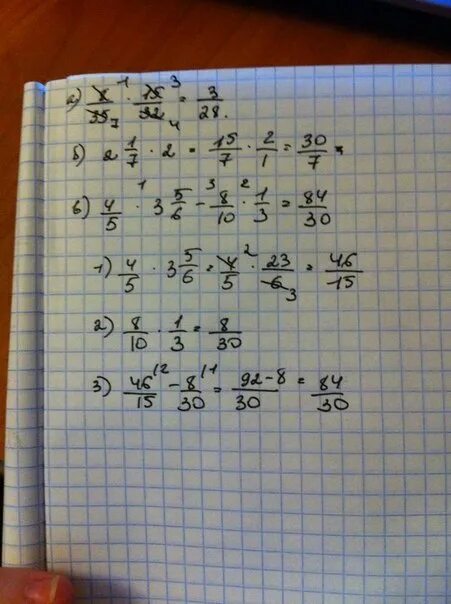 а) 8/35 · 15/32 = 3/28. (1, 7, 3, 4)
б) 2 1/7 · 2 = 15/7 · 2/1 = 30/7
в) 4/5 ·¹ 3 5/6 −³ 8/10 ·² 1/3 = 84/30
1) 4/5 · 3 5/6 = 4/5 · 23/6 = 46/15 (2, 3)
2) 8/10 · 1/3 = 8/30
3) 46/15 /2 − 8/30 /1 = 92-8/30 = 84/30